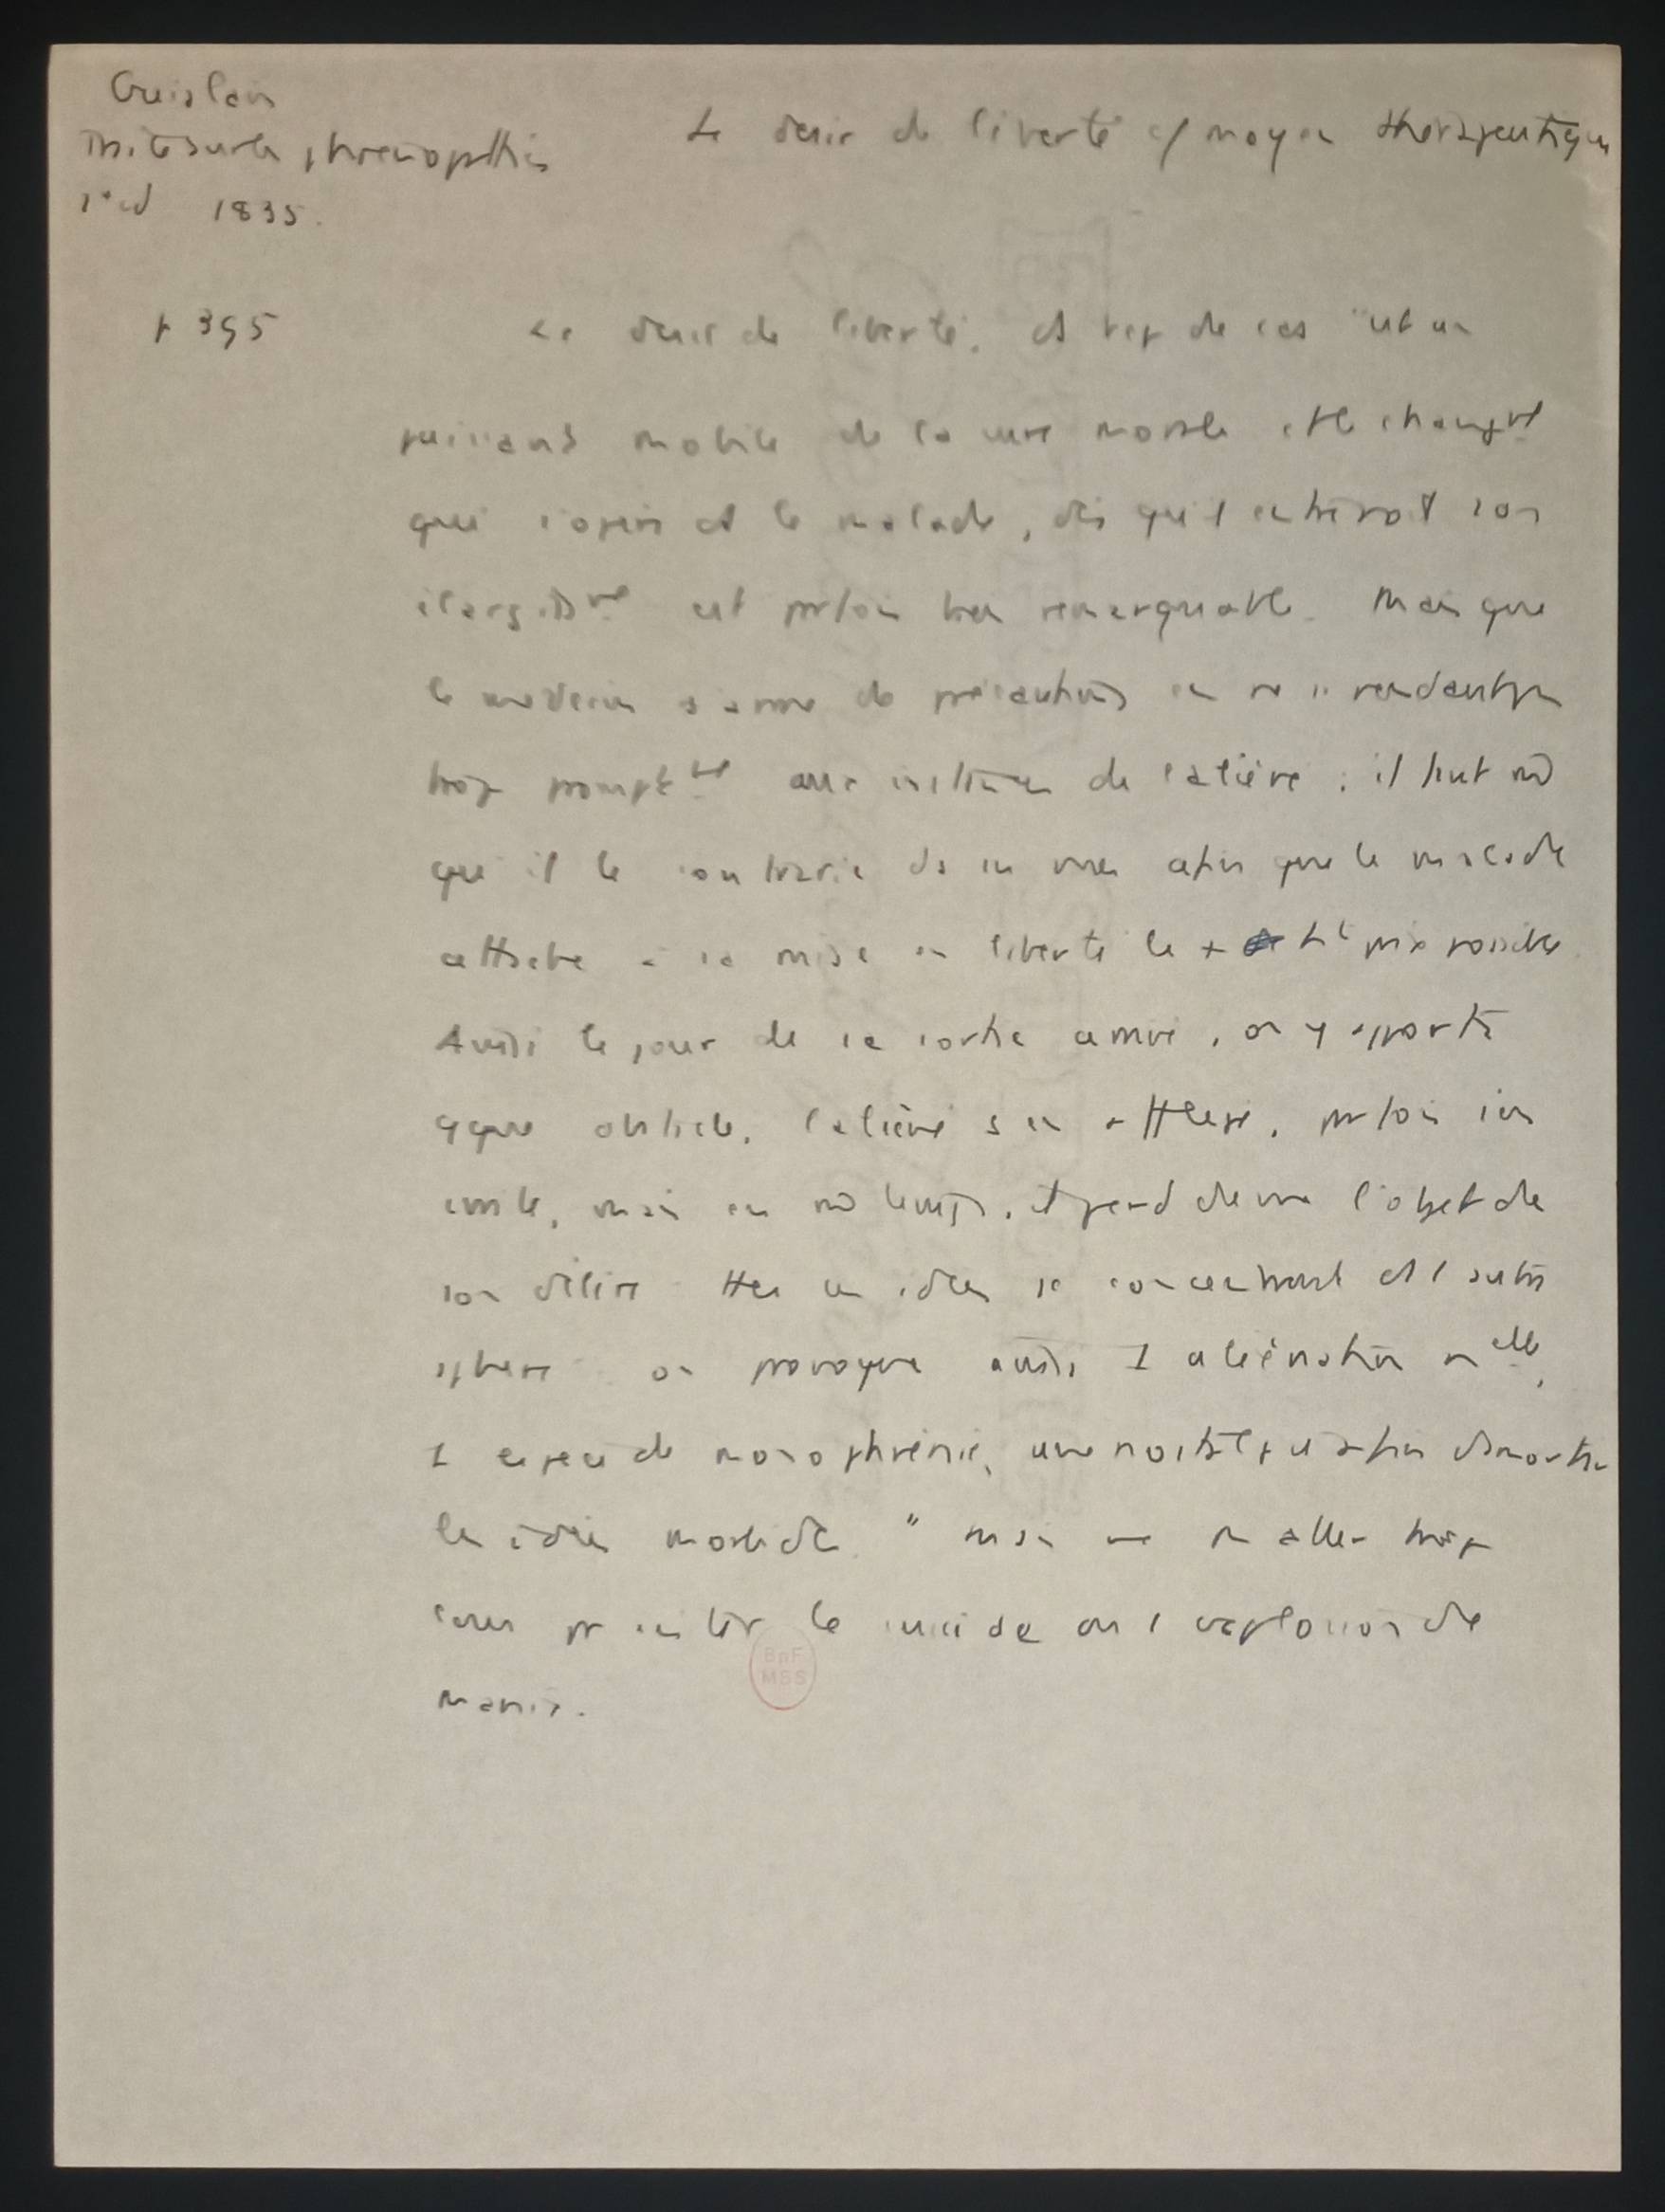 Guislain
Traité sur les phrenopathies
1e ed 1835.
Le desir de liberté c/ moyen thérapeutique
p 395
Le desir de liberté, ds bcp de cas "est un
puissant mobile de la cure morale et le changt
qui s'opère ds le malade, dès qu'il entrevoit son
élargissmt est prfois bien remarquable. Mais que
le médecin s'arme de précautions en ne se rendant pas
trop promptmt aux instances de l'aliéné ; il faut mê
qu'il le contrarie ds ses vues afin que le malade
attache à sa mise en liberté le + ht prix possible.
Aussi le jour de sa sortie arrivé, on y apporte
qque obstacle, l'aliéné s'en afflige, prfois s'en
irrite, mais en mê temps, il perd de vue l'objet de
son délire ttes ses idées se concentrant ds 1 autre
sphère on provoque ainsi 1 aliénation nelle,
1 espèce de monophrénie, une nostalgie afin de
les idées morbides." mais ne pas aller trop
loin pr éviter le suicide ou l'explosion de
manie.
BnF
MSS